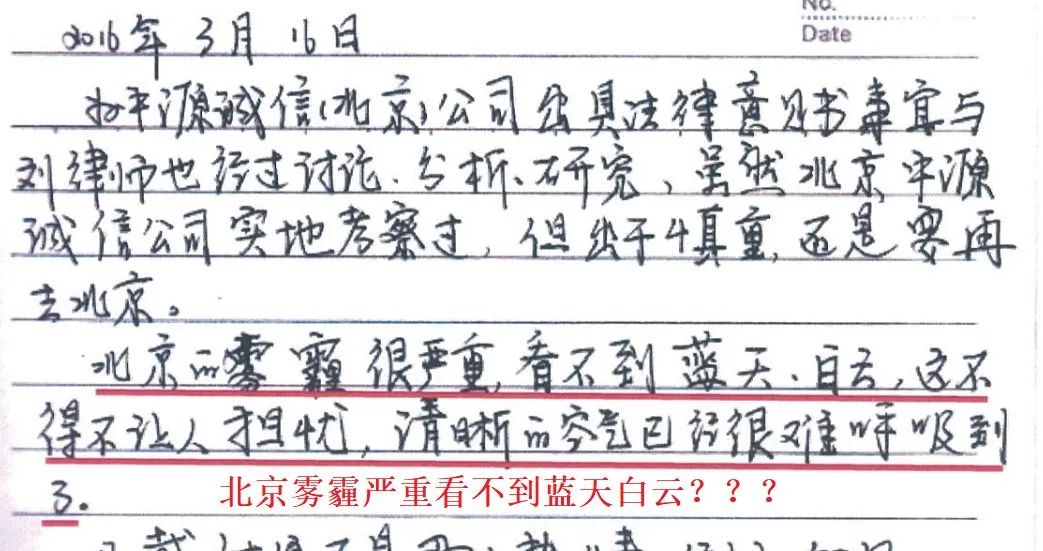 No.
Date
2016年3月16日
如平源诚信(北京)公司出具法律意见书事宜与
刘律师也经过讨论、分析、研究,虽然北京平源
诚信公司实地考察过,但出于慎重,还是要再
去北京。
北京的雾霾很严重,看不到蓝天、白云,这不
得不让人担忧,清晰的空气已经很难呼吸到
了。
北京雾霾严重看不到蓝天白云???